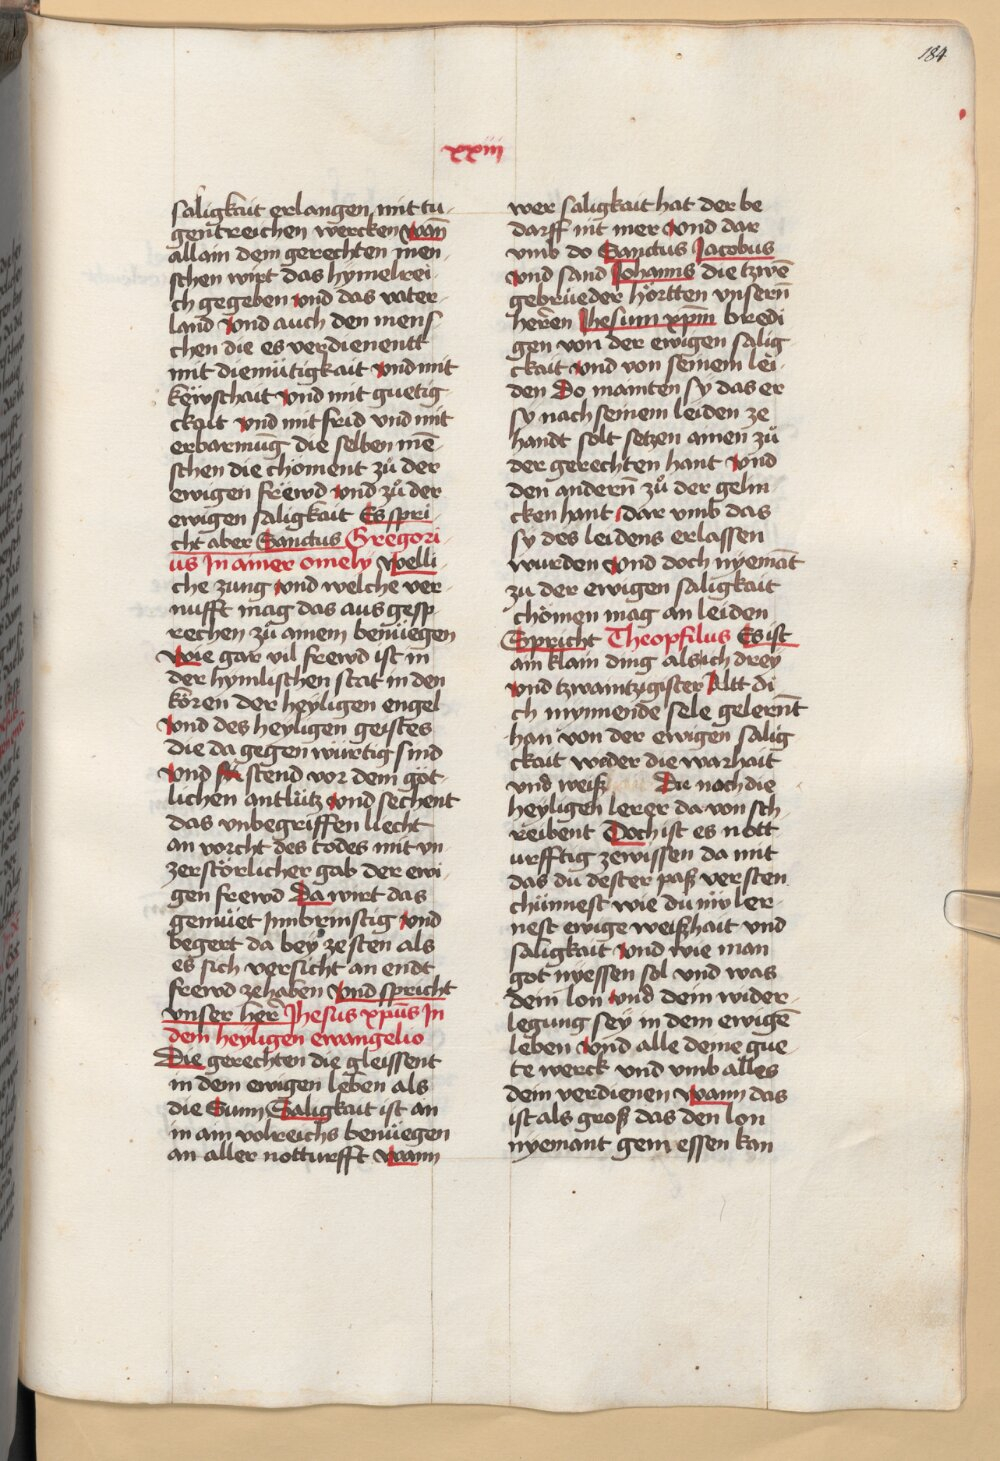 184
xxiii
saligkait erlangen mit tu-
gentreichen wercken wan̄
allain dem gerechten men-
schen wirt das hymelrei-
ch gegeben vnd das vater-
land vnd auch den mens
chen die es verdienentt
mit diemütigkait vnd mit
këwschait vnd mit guetig-
ckait vnd mit frid vnd mit
erbarmūg die selben mē-
schen die choment zů der
ewigen frëwd vnd zů der
ewigen saligkait Es spri-
cht aber Sanctus Gregori-
us In ainer omely Welli-
che zung vnd welche ver-
nufft mag das aus gesp
rechen zů ainem benüegen
Wie gar vil frewd ist in
der hymlischen stat in den
kören der heyligen engel
vnd des heyligen geistes
die da gegen würtig sind
vnd stend vor dem göt-
lichen antlütz vnd sechent
das vnbegriffen liecht
an vorcht des todes mit vn-
zerstörlicher gab der ewi-
gen frewd Da wirt das
gemüet Innbrinstig vnd
begert da bey zesten als
es sich versicht an endt
frewd zehaben vnd spricht
vnser her̄ Jhesus xp̄us In
dem heyligen ewangelio
Die gerechten die gleissent
in dem ewigen leben als
die Sunn Saligkait ist an
in ain volreichs benüegen
an aller notturfft Wann
wer saligkait hat der be
darff nit mer vnd dar
vmb do Sanctus Jacobus
vnd sand Johanns die tzwē
gebrüeder hörtten vnsern̄
herren Jhesum xpm̄ bredi
gen von der ewigen salig
ckait vnd von seinem lei-
den Do mainten sy das er
sy nach seinem leiden ze
handt solt setzen ainen zů
der gerechten hant vnd
den andern̄ zů der gelin-
cken hant dar vmb das
sy des leidens erlassen
wurden vnd doch nyemāt
zu der ewigen saligkait
chömen mag an leiden
Spricht Theopfilus Es ist
ain klain ding als ich drey
vnd tzwaintzigister Altt di
ch mynnende sele gelernt
han von der ewigen salig
ckait wider die warhait
vnd weiß Die noch die
heyligen lerer da von sch-
reibent Doch ist es nott
urfftig zewissen da mit
das du dester paß versten
chünnest wie du nw ler-
nest ewige weißhait vnd
saligkait vnd wie man
got nyessen sol vnd was
dein lon vnd dein wider-
legung seÿ in dem ewigē
leben vnd alle deine gue-
te werck vnd vmb alles
dein verdienen wann das
ist als groß das den lon
nyemant gemessen kan